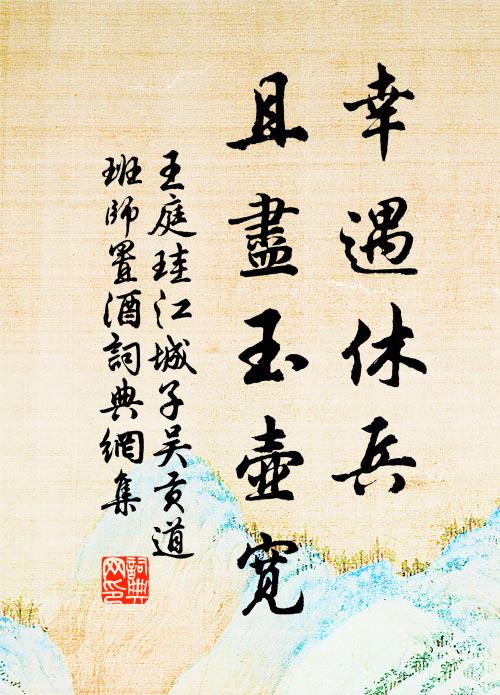 幸遇休兵
且盡玉壺寬
王庭珪江城子吴贡道
班師置酒詞典網集
詞典
网印